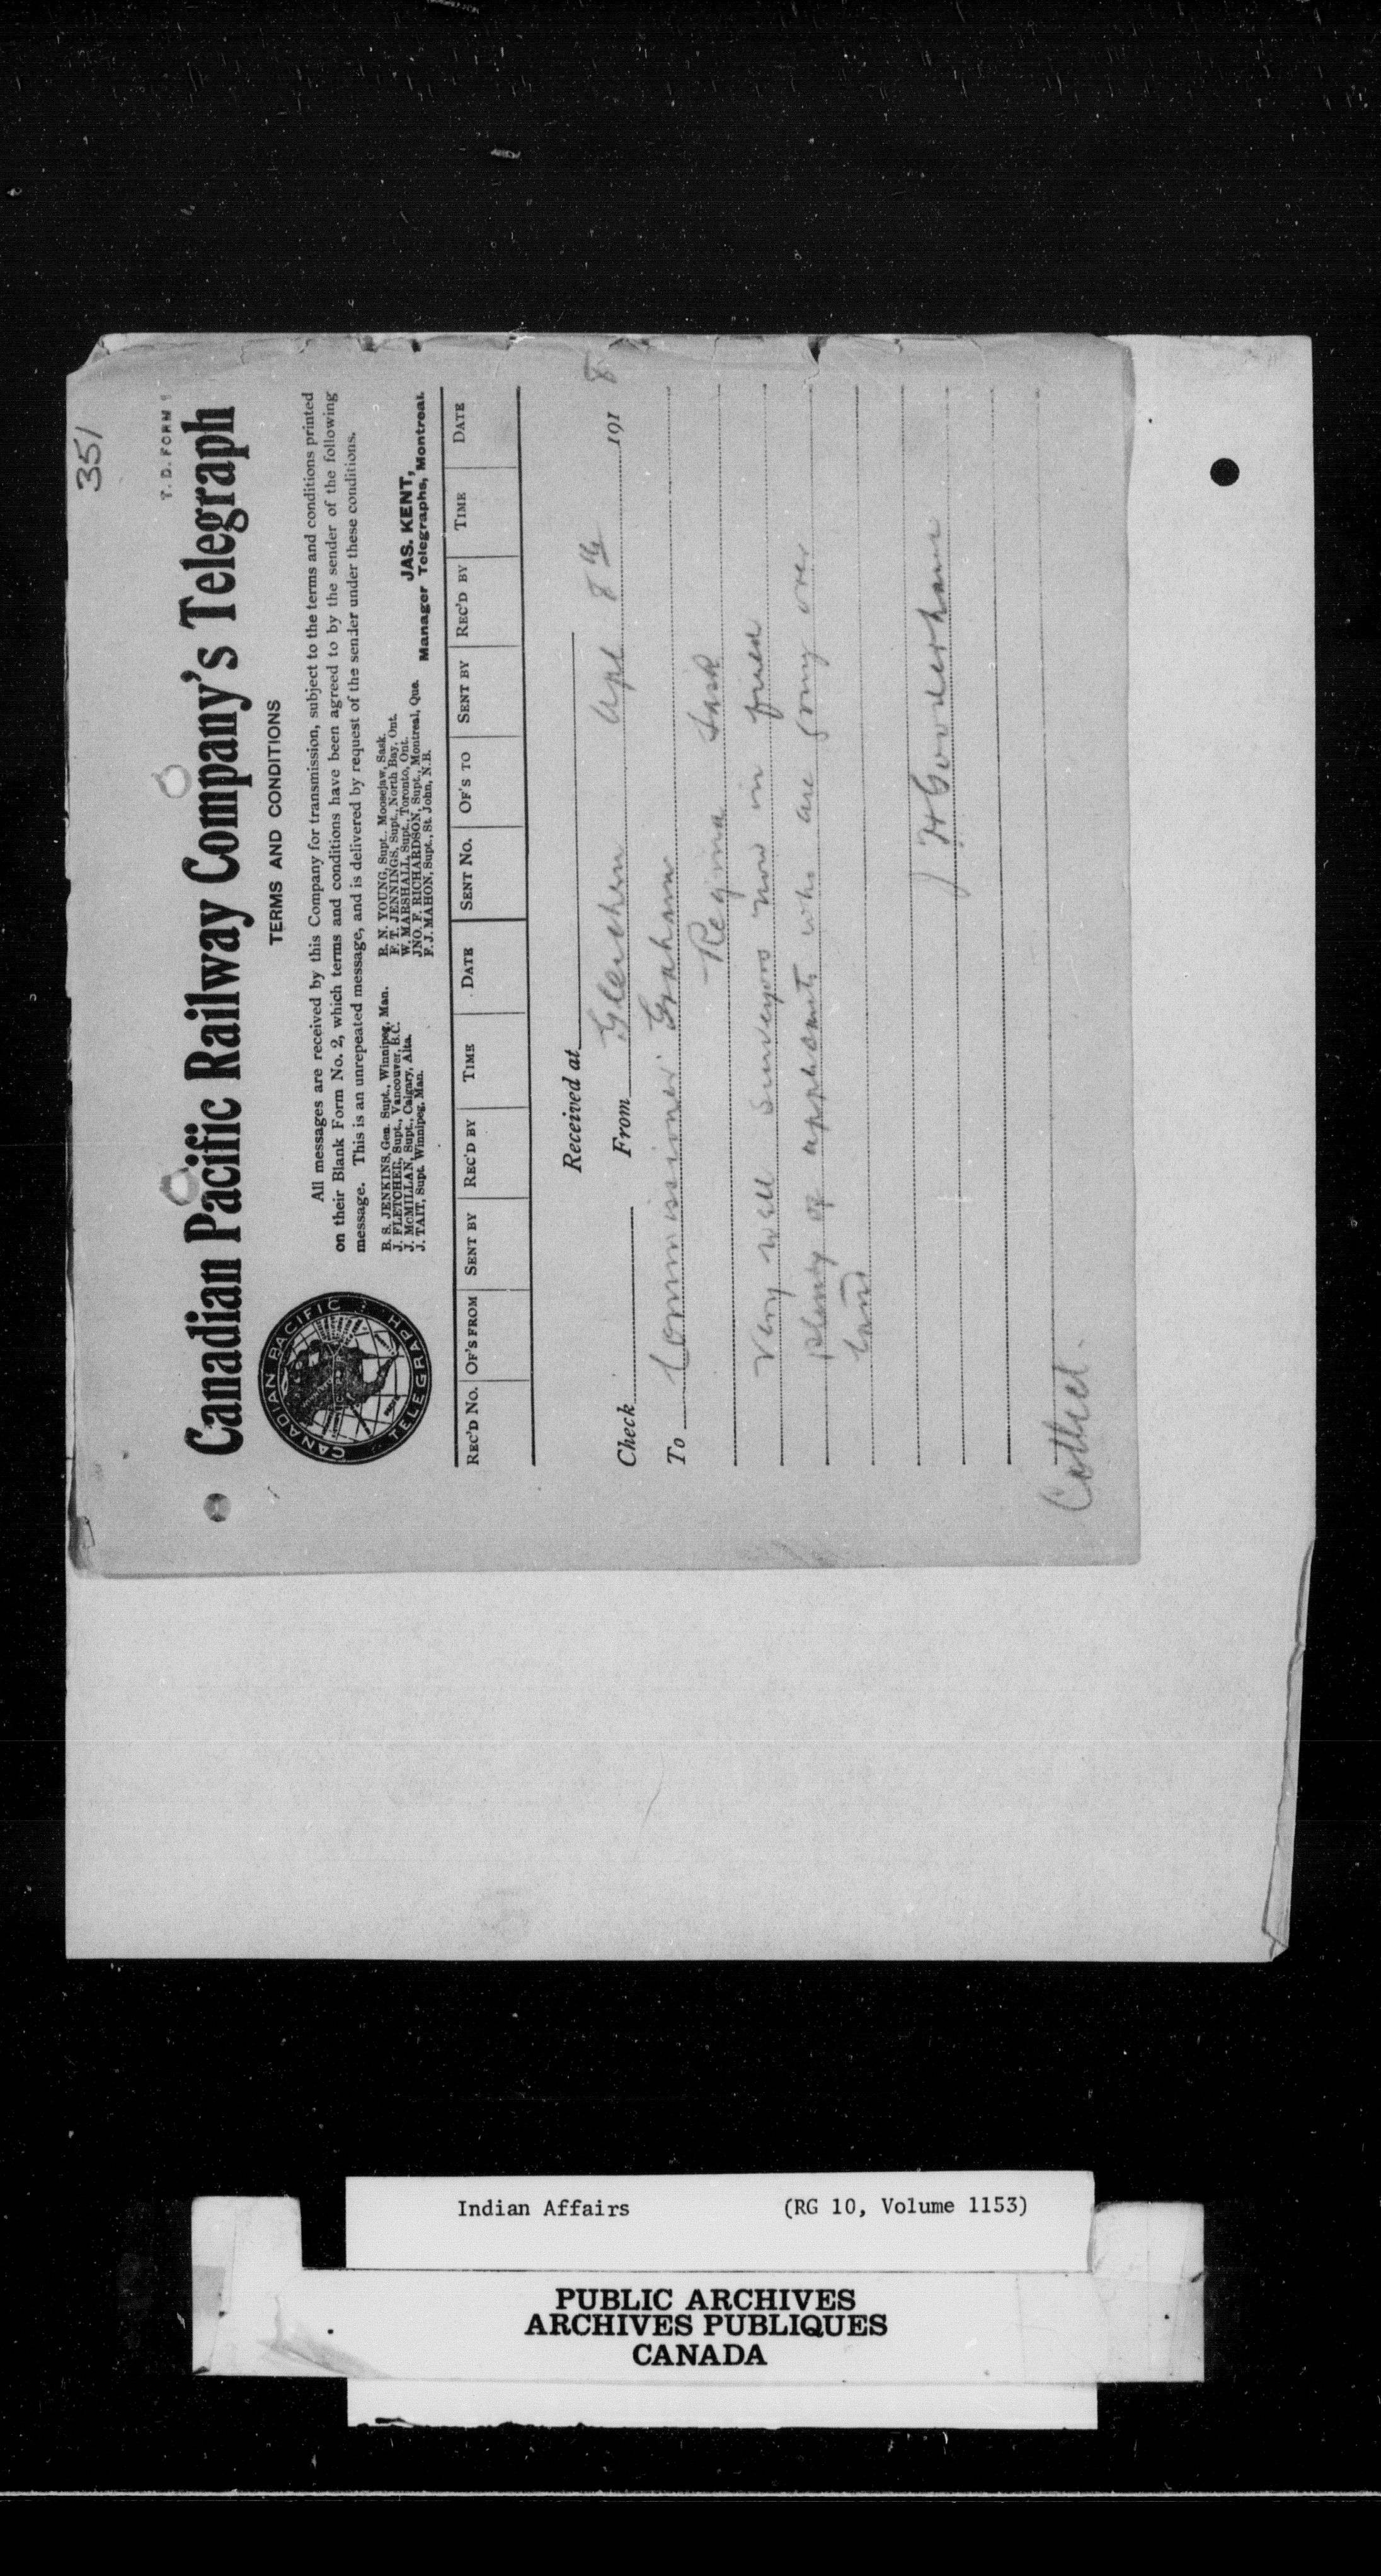 351
T. D. FORM 1
Canadian Pacific Railway Company's Telegraph
TERMS AND CONDITIONS
All messages are received by this Company for transmission, subject to the terms and conditions printed
on their Blank Form No. 2, which terms and conditions have been agreed to by the sender of the following
message. This is an unrepeated message, and is delivered by request of the sender under these conditions.
B. S. JENKINS, Gen. Supt., Winnipeg, Man.
J. FLETCHER, Supt., Vancouver, B.C.
J. McMILLAN, Supt., Calgary, Alta.
J. TAIT, Supt. Winnipeg, Man.
R. N. YOUNG, Supt., Moosejaw, Sask.
F. T. JENNINGS, Supt., North Bay, Ont.
W. MARSHALL, Supt., Toronto, Ont.
JNO. F. RICHARDSON, Supt., Montreal, Que.
F. J. MAHON, Supt., St. John, N.B.
JAS. KENT,
Manager Telegraphs, Montreal.
CANADIAN PACIFIC TELEGRAPH
REC'D No. OF'S FROM SENT BY REC'D BY TIME DATE SENT No. OF'S TO SENT BY REC'D BY TIME DATE
Received at
Check From Gleichen Apl 8th 191 8
To Commissioner Graham
Regina Sask
Very well surveyors now in field
plenty of applicants who are going over
land
J H Gooderham
Collect.
Indian Affairs (RG 10, Volume 1153)
PUBLIC ARCHIVES
ARCHIVES PUBLIQUES
CANADA